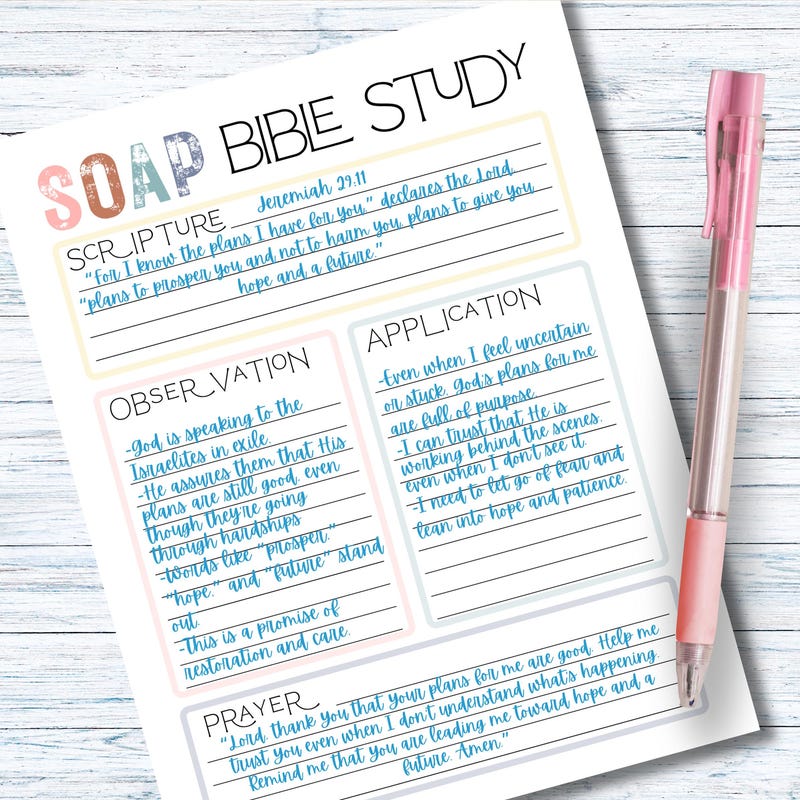 SOAP BIBLE STUDY
SCRIPTURE Jeremiah 29:11
"For I know the plans I have for you," declares the Lord,
"plans to prosper you and not to harm you, plans to give you
hope and a future."
OBSERVATION
-God is speaking to the
Israelites in exile.
-He assures them that His
plans are still good, even
though they're going
through hardships.
-Words like "prosper,"
"hope," and "future" stand
out.
-This is a promise of
restoration and care.
APPLICATION
-Even when I feel uncertain
or stuck, God's plans for me
are full of purpose.
-I can trust that He is
working behind the scenes,
even when I don't see it.
-I need to let go of fear and
lean into hope and patience.
PRAYER
"Lord, thank you that your plans for me are good. Help me
trust you even when I don't understand what's happening.
Remind me that you are leading me toward hope and a
future. Amen."